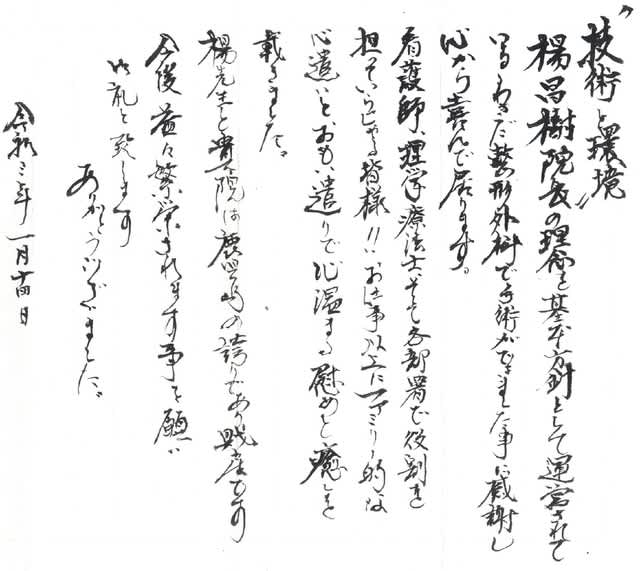 〃技術と環境〃
楊昌樹院長の理念を基本方針として運営されて
いるよねだ整形外科で手術ができました事に感謝し
心から喜んで居ります。
看護師、理学療法士、そして各部署で役割を
担っていらっしゃる皆様!!お仕事以上にファミリー的な
心遣いと、おもい遣りで心温まる慰めと癒しを
載きました。
楊先生と貴院は鹿児島の誇りであり財産です
今後益々繁栄されます事を願い
御礼と致します
ありがとうございました。
令和三年一月十四日